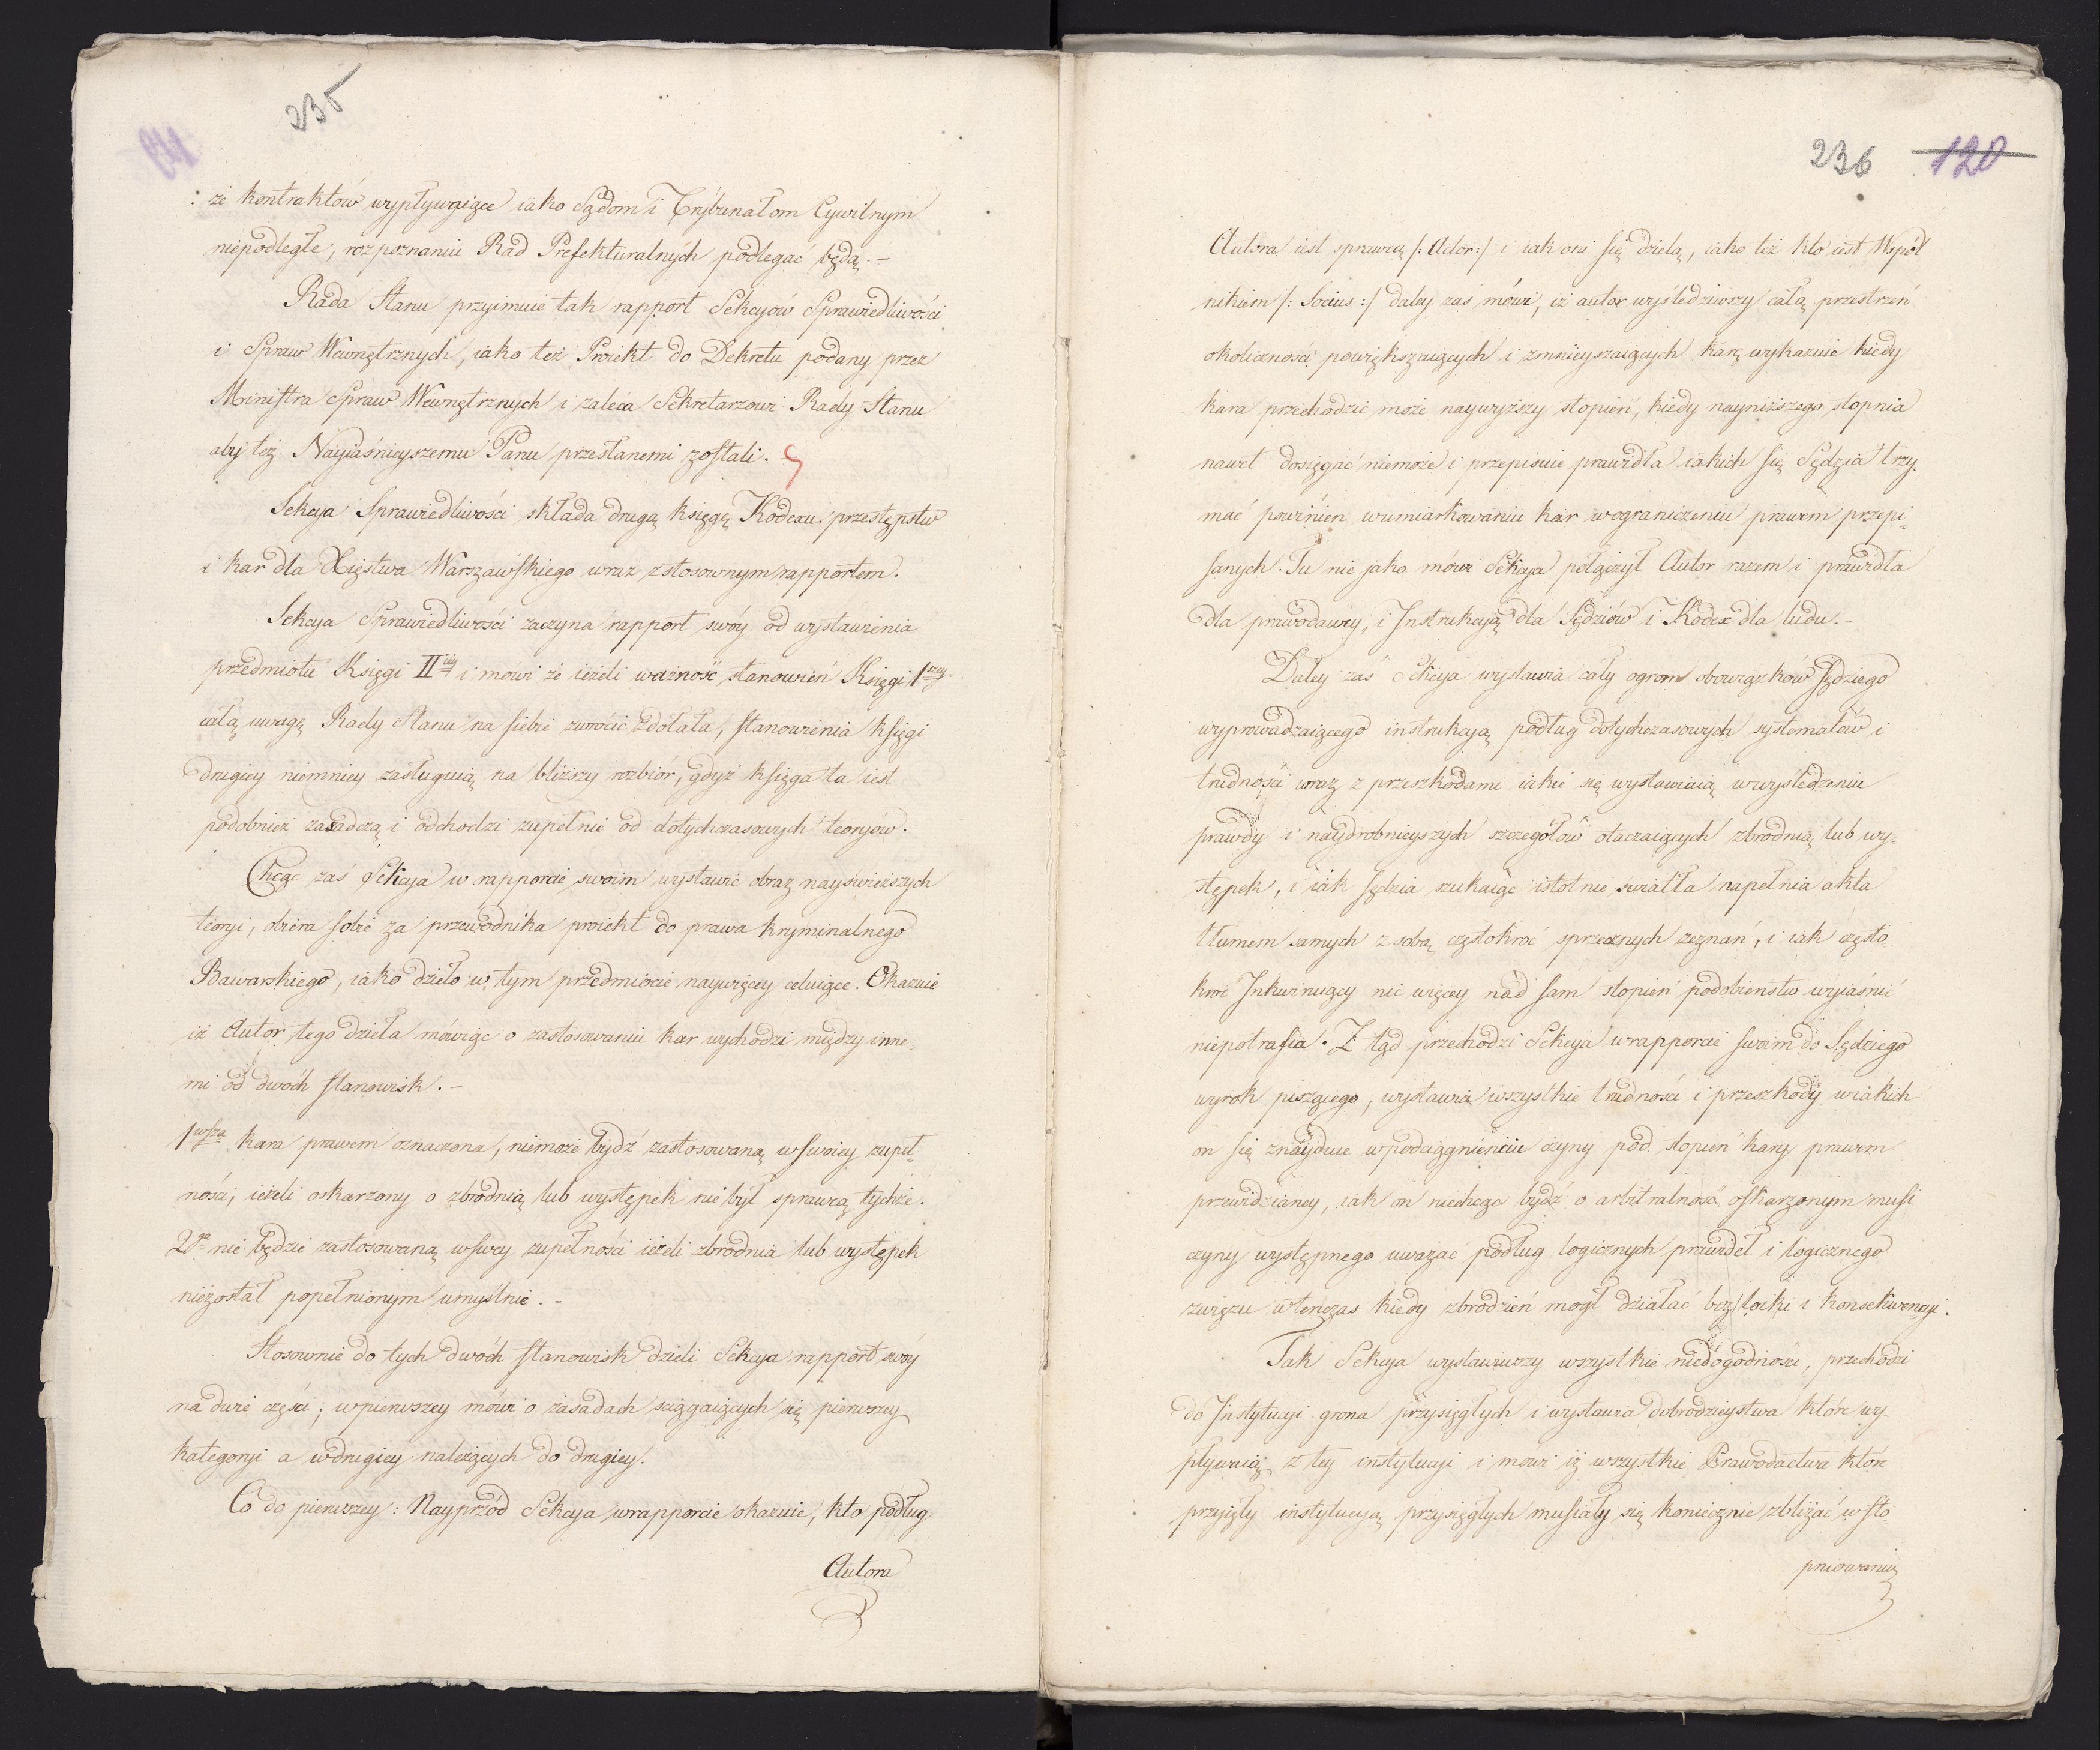 235
że kontraktów wypływaiące iako Sądom i Trybunałom Cywilnym
niepodległe, rozpoznaniu Rad Prefekturalnych podlegać będą. –
Rada Stanu przyimuie tak rapport Sekcyów Sprawiedliwości
i Spraw Wewnętrznych, iako też Proiekt do Dekretu podany przez
Ministra Spraw Wewnętrznych i zaleca Sekretarzowi Rady Stanu
aby też Nayiaśnieyszemu Panu przesłanemi zostali.
Sekcya Sprawiedliwości składa drugą księgę Kodexu przestępstw
i kar dla Xięstwa Warszawskiego wraz z stosownym rapportem.
Sekcya Sprawiedliwości zaczyna rapport swóy od wystawienia
przedmiotu Księgi II iey i mówi że ieżeli ważność stanowień Księgi 1 szey
całą uwagę Rady Stanu na siebie zwrócić zdołała, stanowienia księgi
drugiey niemniey zasługuią na bliższy rozbiór, gdyż księga ta iest
podobnież zasadczą i odchodzi zupełnie od dotychczasowych teoryów.
Chcąc zaś Sekcya w rapporcie swoim wystawić obraz nayświeższych
teoryi, obiera sobie za przewodnika proiekt do prawa kryminalnego
Bawarskiego, iako dzieło w tym przedmiocie naywięcey celuiące. Okazuie
iż Autor tego dzieła mówiąc o zastosowaniu kar wychodzi między inne-
mi od dwóch stanowisk. –
1 wsza kara prawem oznaczona, niemoże bydź zastosowaną w swoiey zupeł-
ności, ieżeli oskarzony o zbrodnią lub występek nie był sprawcą tychże.
2 ga nie będzie zastosowaną w swey zupełności ieżeli zbrodnia lub występek
niezostał popełnionym umyślnie. –
Stosownie do tych dwóch stanowisk dzieli Sekcya rapport swóy
na dwie części; w pierwszey mówi o zasadach sciągaiących się pierwszey
kategoryi a w drugiey należących do drugiey.
Co do pierwszey: Nayprzód Sekcya w rapporcie okazuie, kto podług
Autora
236 120
Autora iest sprawcą /: Actor :/ i iak oni się dzielą, iako też kto iest Wspól
nikiem /: Socius :/ daley zaś mówi, iż autor wyśledziwszy całą przestrzeń
okoliczności powiększaiących i zmnieyszaiących karę wykazuie kiedy
kara przechodzić może naywyższy stopień, kiedy nayniższego stopnia
nawet dosięgać niemoże i przepisuie prawidła iakich się Sędzia trzy-
mać powinien w umiarkowaniu kar w ograniczeniu prawem przepi-
sanych. Tu nie jako mówi Sekcya połączył Autor razem i prawidła
dla prawodawcy, i Instrukcyą dla Sędziów i Kodex dla ludu. –
Daley zaś Sekcya wystawia cały ogrom obowiązków Sędziego
wyprowadzaiącego instrukcyą podług dotychczasowych systematów i
trudności wraz z przeszkodami iakie się wystawiaią w wyśledzeniu
prawdy i naydrobnieyszych szczegółów otaczaiących zbrodnią lub wy-
stępek, i iak Sędzia szukaiąc istotnie światła napełnia akta
tłumem samych z sobą częstokroć sprzecznych zeznań, i iak często
kroć Inkwiruiący nic więcey nad sam stopień podobieństw wyiaśnić
niepotrafia. Z tąd przechodzi Sekcya w rapporcie swoim do Sędziego
wyrok piszącego, wystawia wszystkie trudności i przeszkody w iakich
on się znayduie w podciągnieniu czyny pod stopień kary prawem
przewidzianey, iak on niechcąc bydź o arbitralność oskarzonym musi
czyny występnego uważać podług logicznych prawideł i logicznego
związu wtenczas kiedy zbrodzień mogł działać bez loiki i konsekwencyi.
Tak Sekcya wystawiwszy wszystkie niedogodności, przechodzi
do Instytucyi grona przysięgłych i wystawia dobrodzieystwa które wy-
pływaią z tey instytucyi i mówi iż wszystkie Prawodactwa które
przyięły instytucyą przysięgłych musiały się koniecznie zbliżać w sto
pniowaniu